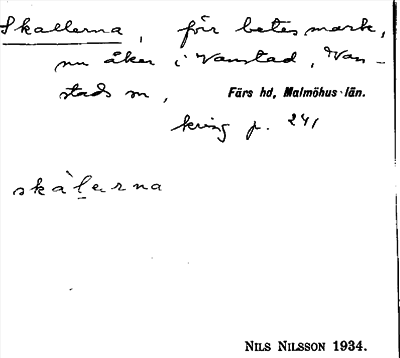 Skallerna, förr betesmark,
nu åker i Vanstad, Van-
stads sn, Färs hd, Malmöhus län.
kring p. 241
skàl̠erna
NILS NILSSON 1934.